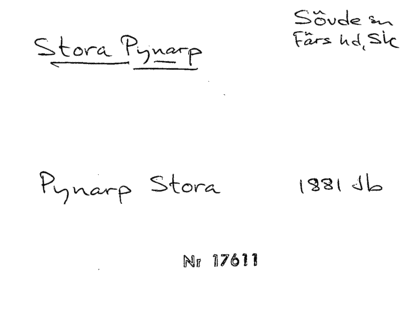 Stora Pynarp
Sövde sn
Färs hd, Sk
Pynarp Stora
1881 Jb
Nr 17611